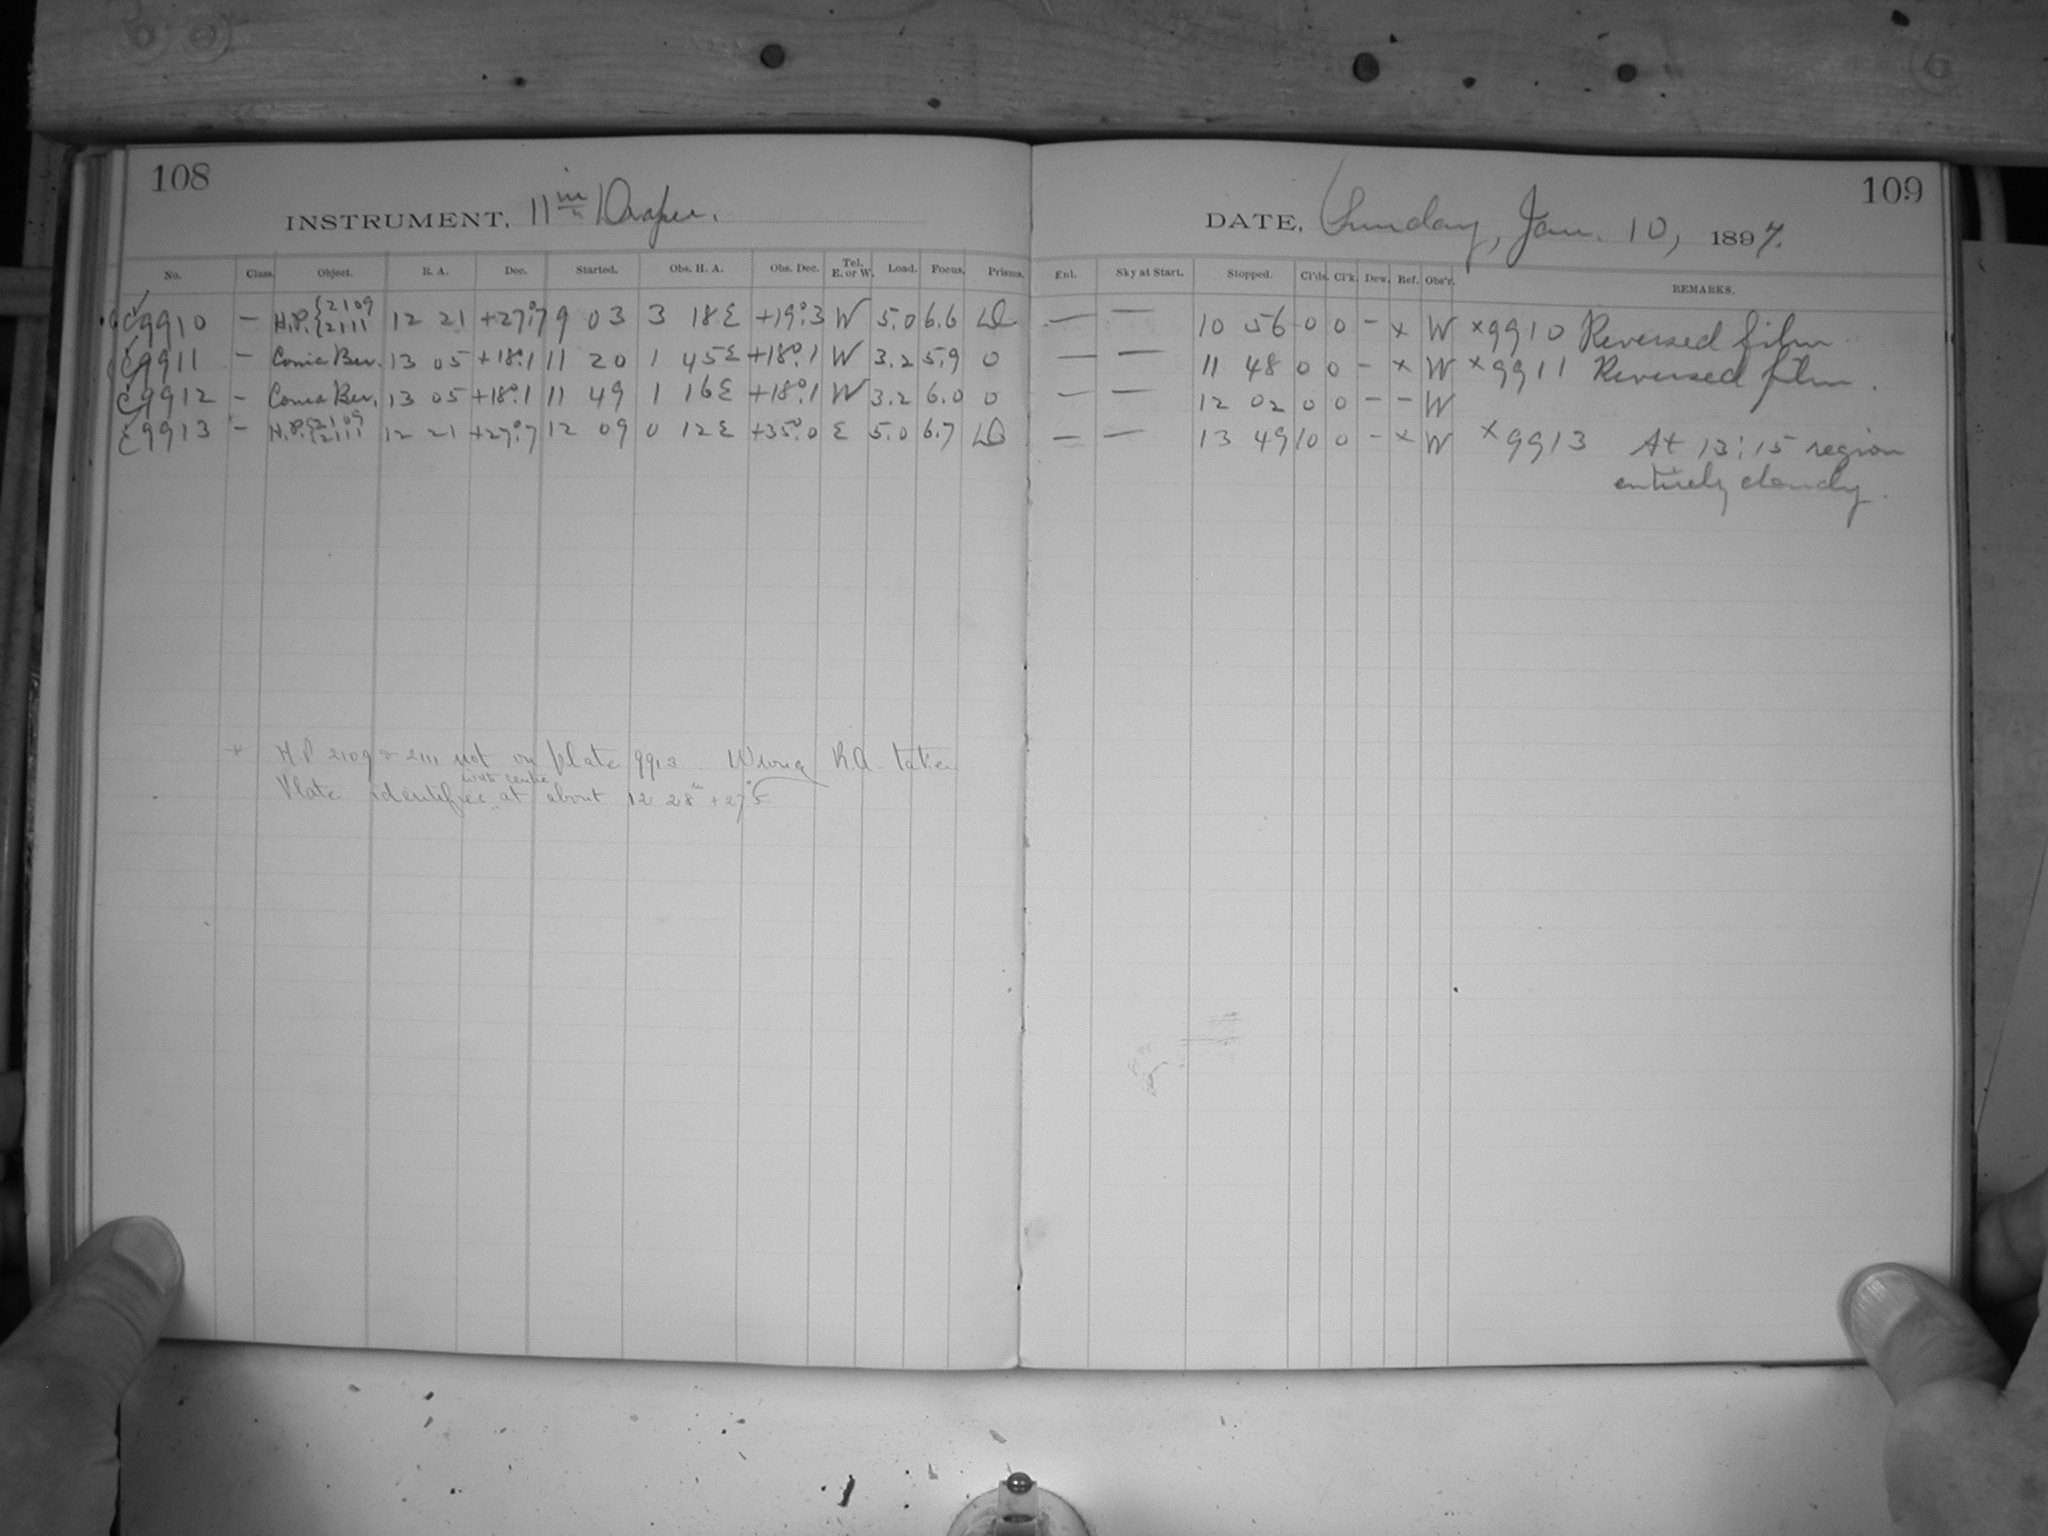 108
INSTRUMENT, 11 in Draper.
No. Class. Object. R. A. Dec. Started. Obs. H. A. Obs. Dec. Tel. E. or W. Load. Focus. Prisms.
C9910 – H.P. {2109 2111 12 21 +27°.7 9 03 3 18 E +19°.3 W 5.0 6.6
C9911 – Coma Ber. 13 05 +18°.1 11 20 1 45 E +18°.1 W 3.2 5.9 0
C9912 – Coma Ber. 13 05 +18°.1 11 49 1 16 E +18°.1 W 3.2 6.0 0
C9913 – H.P. {2109 2111 12 21 +27°.7 12 09 0 12 E +35°.0 E 5.0 6.7
+ H.P 2109 & 2111 not on plate 9913. Wrong R.A. taken
Plate identified with centre at about 12 28m +27°.5
109
DATE, Sunday, Jan. 10, 1897.
Enl. Sky at Start. Stopped. Cl'ds. Cl'k. Dew. Ref. Obs'r. REMARKS.
— — 10 56 0 0 – x W x9910 Reversed film.
— — 11 48 0 0 – x W x9911 Reversed film.
— — 12 02 0 0 – – W
— — 13 49 10 0 – x W x9913 At 13:15 region
entirely cloudy.